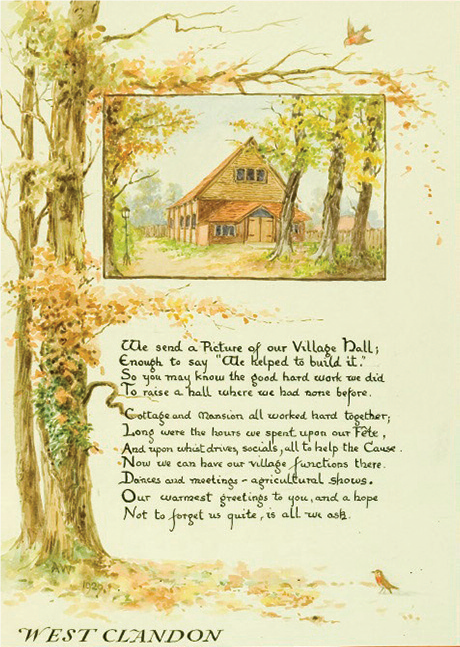 We send a Picture of our Village Hall;
Enough to say "We helped to build it."
So you may know the good hard work we did
To raise a hall where we had none before.
Cottage and Mansion all worked hard together;
Long were the hours we spent upon our Fête,
And upon whist drives, socials, all to help the Cause.
Now we can have our village functions there.
Dances and meetings - agricultural shows.
Our warmest greetings to you, and a hope
Not to forget us quite, is all we ask.
AW
1929
WEST CLANDON